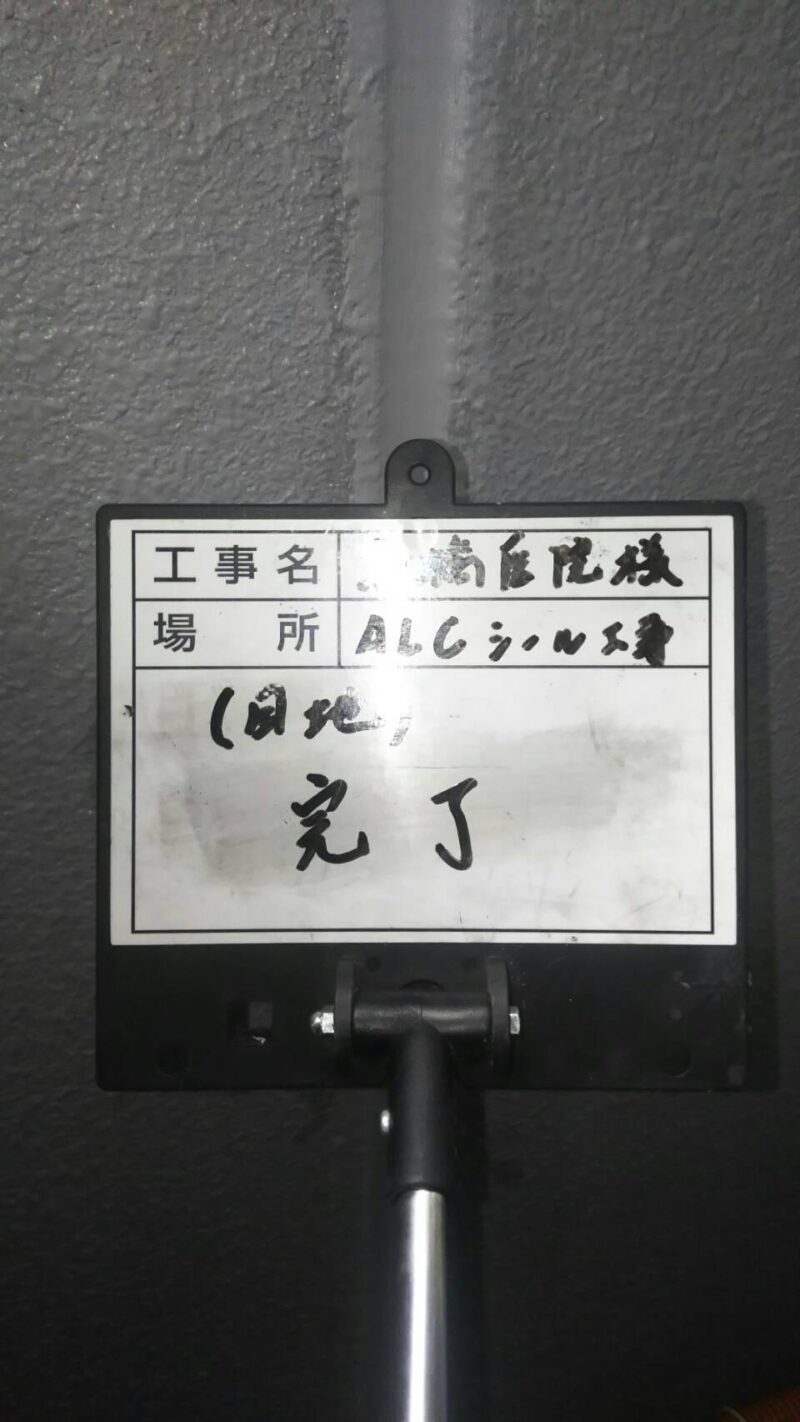 工事名 医院様
場所 ALCシール工事
(目地)
完了